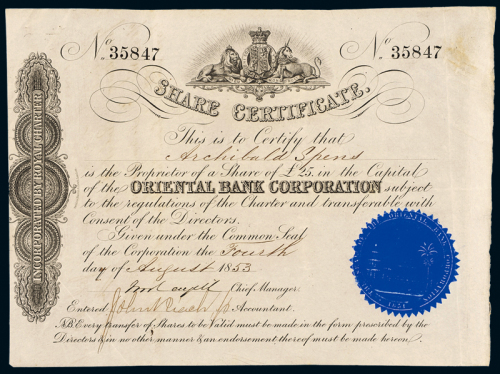 No. 35847 No. 35847
SHARE CERTIFICATE.
INCORPORATED BY ROYAL CHARTER
This is to Certify that
Archibald Spens
is the Proprietor of a Share of £25. in the Capital
of the ORIENTAL BANK CORPORATION subject
to the regulations of the Charter and transferable with
Consent of the Directors.
Given under the Common Seal
of the Corporation the Fourth
day of August 1853
Chief Manager.
Entered Accountant.
NB. Every transfer of Shares to be valid must be made in the form prescribed by the
Directors & in no other manner & an endorsement thereof must be made hereon.
ORIENTAL BANK CORPORATION
1851